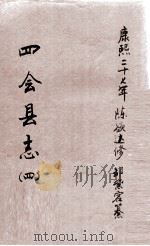 康熙二十七年 陈欲达修 郝鳌容纂
四会县志(四)